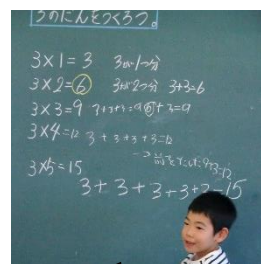 3のだんをつくろう。
3×1=3 3が1つ分
3×2=6 3が2つ分 3+3=6
3×3=9 3+3+3=9 6+3=9
3×4=12 3+3+3+3=12
9+3=12
3×5=15
3+3+3+3+3=15